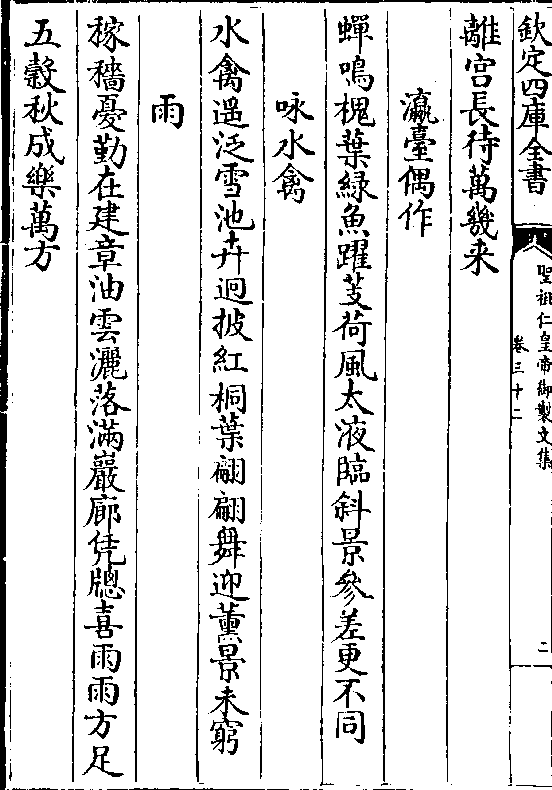 欽定四庫全書
聖祖仁皇帝御製文集
卷三十二
二
離宮長待萬幾来
瀛臺偶作
蟬鳴槐葉緑魚躍芰荷風太液臨斜景參差更不同
咏水禽
水禽遥泛雪池卉迥披紅桐葉翩翩舞迎薰景未窮
雨
稼穡憂勤在建章油雲灑落滿巖廊凭牕喜雨雨方足
五穀秋成樂萬方